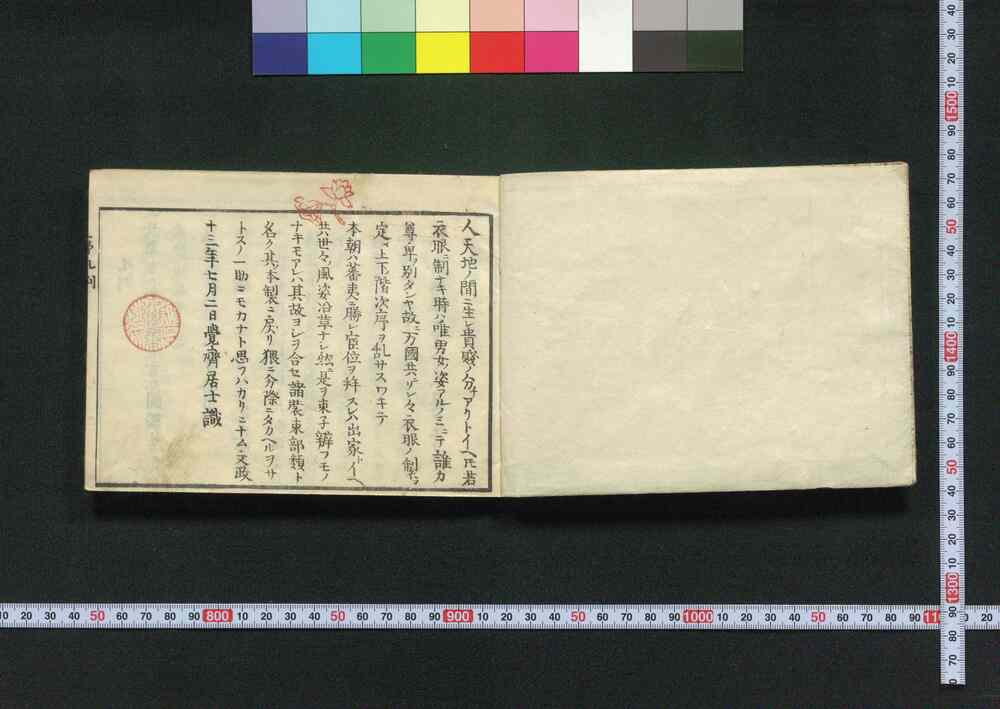 人天地ノ間ニ生レ貴賤ノ分チアリトイヘ𪜈若
衣服ニ制ナキ時ハ唯男女ノ姿アルノミニテ誰カ
尊卑ノ別タンヤ故ニ万國共ソレ々ニ衣服ノ制ヲ
定メ上下階次序ヲ乱サスワキテ
本朝ハ蕃夷ニ勝レ宦位ヲ拜スレハ出家トイヘ
𪜈世々ノ風姿沿革ナレ然ニ是ヲ束子辨フモノ
ナキモアレハ其故ヨレヲ合セ諸裝束部類ト
名ク其本製ニ戻リ猥ニ分際ニタカヘルヲサ
トスノ一助ニモカナト思フハカリニナム文政
十三年七月二日覺齊居士識